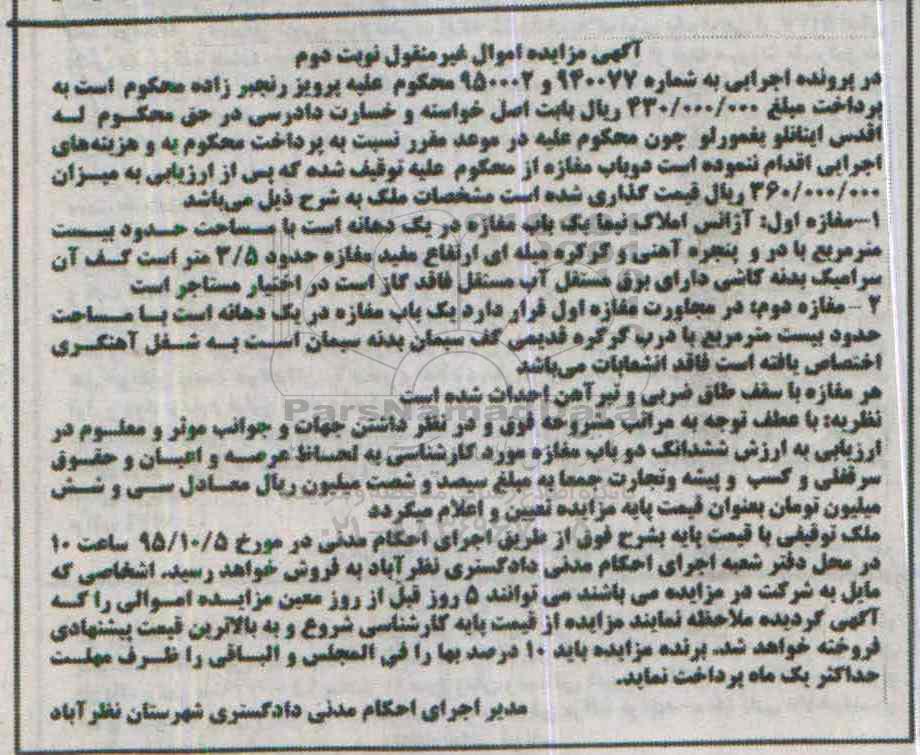 آگهی مزایده اموال غیرمنقول نوبت دوم
در پرونده اجرایی به شماره ۹۴۰۰۷۷ و ۹۵۰۰۰۲ محکوم علیه پرویز رنجبر زاده محکوم است به
پرداخت مبلغ ۴۳۰/۰۰۰/۰۰۰ ریال بابت اصل خواسته و خسارت دادرسی در حق محکوم له
اقدس اینانلو یغمورلو چون محکوم علیه در موعد مقرر نسبت به پرداخت محکوم به و هزینه‌های
اجرایی اقدام ننموده است دوباب مغازه از محکوم علیه توقیف شده که پس از ارزیابی به میزان
۳۶۰/۰۰۰/۰۰۰ ریال قیمت گذاری شده است مشخصات ملک به شرح ذیل می‌باشد
۱-مغازه اول: آژانس املاک نیما یک باب مغازه در یک دهانه است با مساحت حدود بیست
مترمربع با در و پنجره آهنی و کرکره میله ای ارتفاع مفید مغازه حدود ۳/۵ متر است کف آن
سرامیک بدنه کاشی دارای برق مستقل آب مستقل فاقد گاز است در اختیار مستاجر است
۲ - مغازه دوم: در مجاورت مغازه اول قرار دارد یک باب مغازه در یک دهانه است با مساحت
حدود بیست مترمربع با درب کرکره قدیمی کف سیمان بدنه سیمان است به شغل آهنگری
اختصاص یافته است فاقد انشعابات می‌باشد
هر مغازه با سقف طاق ضربی و تیرآهن احداث شده است
نظریه: با عطف توجه به مراتب مشروحه فوق و در نظر داشتن جهات و جوانب موثر و معلوم در
ارزیابی به ارزش ششدانگ دو باب مغازه مورد کارشناسی به لحاظ عرصه و اعیان و حقوق
سرقفلی و کسب و پیشه وتجارت جمعا به مبلغ سیصد و شصت میلیون ریال معادل سی و شش
میلیون تومان بعنوان قیمت پایه مزایده تعیین و اعلام میگردد
ملک توقیفی با قیمت پایه بشرح فوق از طریق اجرای احکام مدنی در مورخ ۹۵/۱۰/۵ ساعت ۱۰
در محل دفتر شعبه اجرای احکام مدنی دادگستری نظرآباد به فروش خواهد رسید. اشخاصی که
مایل به شرکت در مزایده می باشند می توانند ۵ روز قبل از روز معین مزایده اموالی را که
آگهی گردیده ملاحظه نمایند مزایده از قیمت پایه کارشناسی شروع و به بالاترین قیمت پیشنهادی
فروخته خواهد شد. برنده مزایده باید ۱۰ درصد بها را فی المجلس و الباقی را ظرف مهلت
حداکثر یک ماه پرداخت نماید.
مدیر اجرای احکام مدنی دادگستری شهرستان نظرآباد
ParsNamadData